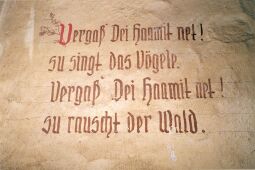 Vergaß Dei Haamit net!
su singt das Vögele.
Vergaß Dei Haamit net!
su rauscht der Wald.